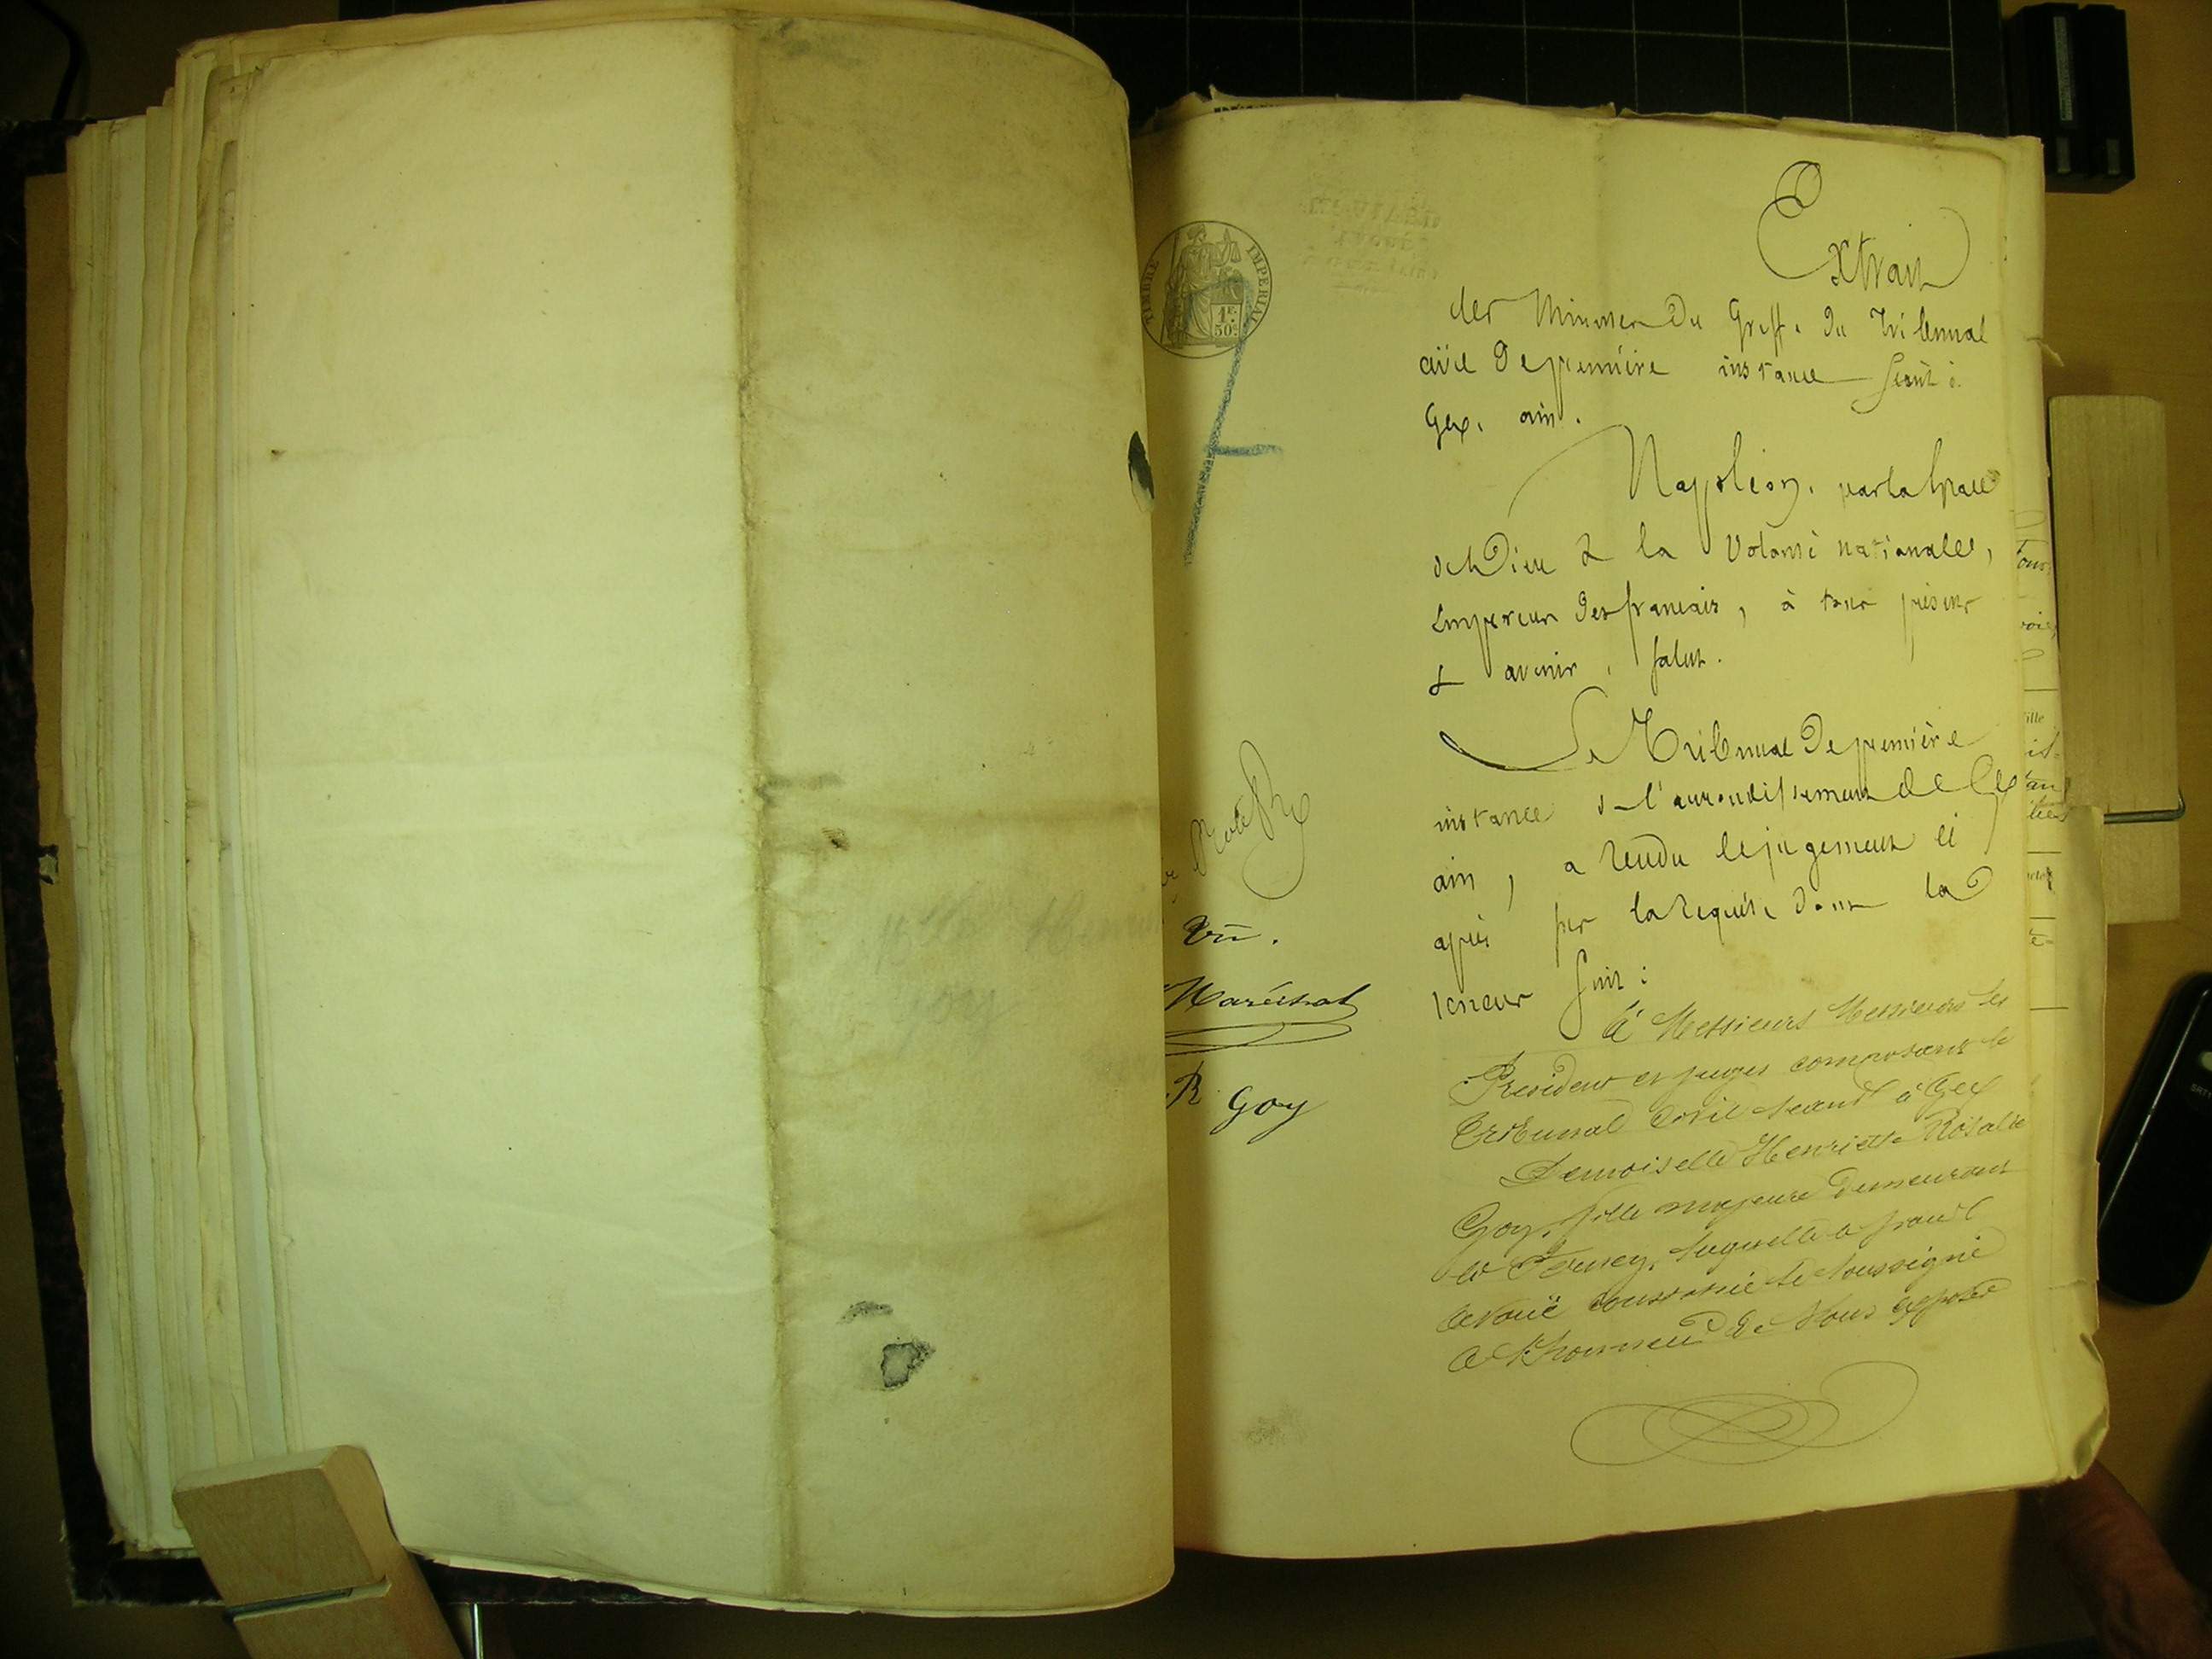 TIMBRE IMPERIAL
1F.
50c.
Extrait
des Minutes Du Greffe du Tribunal
civil De première instance Séant à
Gex. ain.
Napoléon, par la Grace
de Dieu & la Volonté nationale,
Empereur des français, à tous présents
& avenir, Salut.
Le Tribunal De première
instance de l'arrondissement de Gex
ain, a rendu le jugement ci
après sur la requête dont la
teneur suit :
À Messieurs Messieurs les
Président et juges composant le
Tribunal Civil séant à Gex
Demoiselle Henriette Rosalie
Goy, fille majeure demeurant
à Ferney, laquelle a pour
avoué constitué le soussigné
A l'honneur de Vous exposer
Maréchal
R Goy